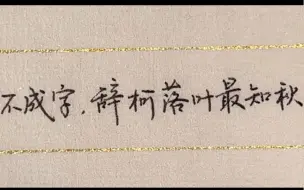 不成字,辞柯落叶最知秋